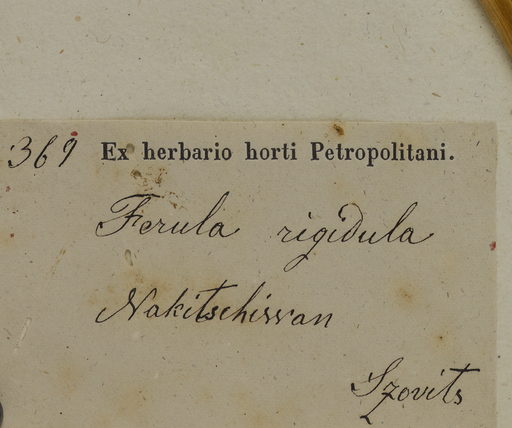 369 Ex herbario horti Petropolitani.
Ferula rigidula
Nakitschivan
Szovits